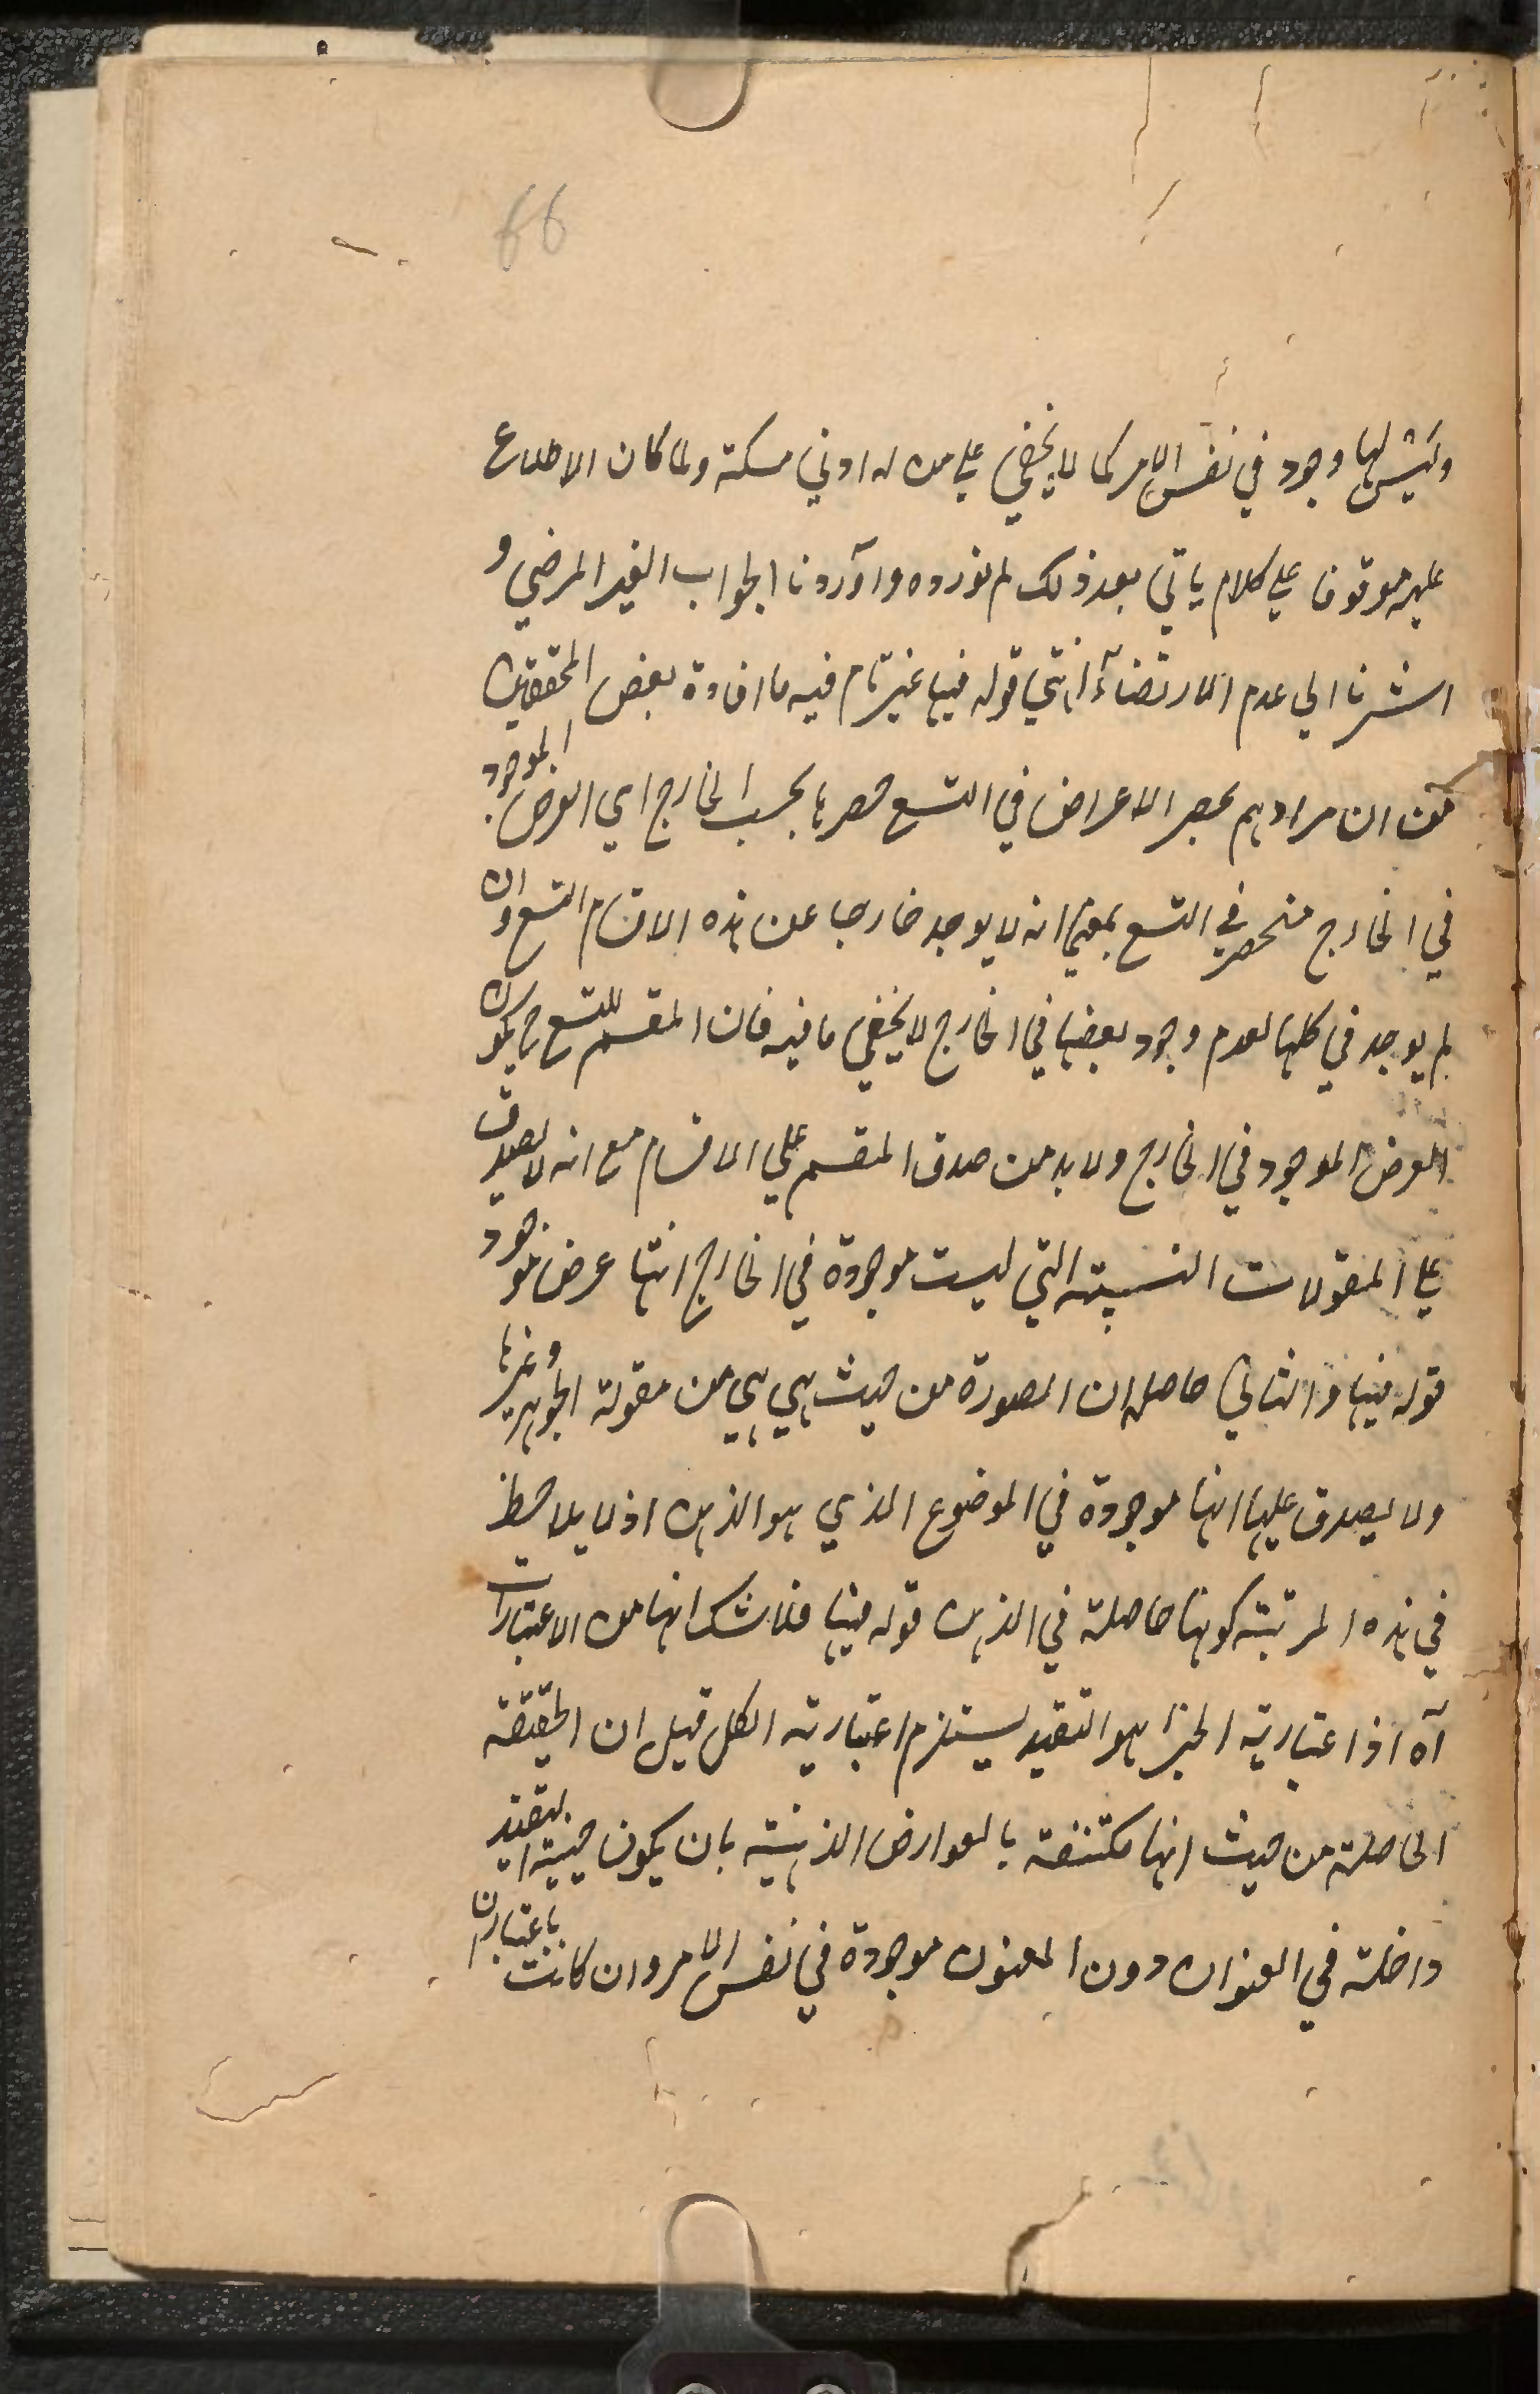 66
وليس لها وجود في نفس الامر كما لا يخفى على من له ادنى مسكة ولما كان الاطلاع
عليه موقوفا على كلام ياتي بعد ذلك لم نورده واوردنا الجواب الغير المرضي و
اشرنا الى عدم الارتضاء انتهى قوله فيها غير تام فيه ما افاده بعض المحققين
من ان مرادهم بحصر الاعراض في التسع حصرها بحسب الخارج اي العرض الموجود
في الخارج منحصر في التسع بمعنى انه لا يوجد خارجا عن هذه الاقسام التسع وان
لم يوجد في كلها لعدم وجود بعضها في الخارج لا يخفى ما فيه فان المقسم للتسع ح يكون
العرض الموجود في الخارج ولا بد من صدق المقسم على الاقسام مع انه لا يصدق
على المقولات النسبية التي ليست موجودة في الخارج انها عرض موجود
قوله فيها والثاني حاصله ان الصورة من حيث هي هي من مقولة الجوهر وغيرها
ولا يصدق عليها انها موجودة في الموضوع الذي هو الذهن اذ لا يلاحظ
في هذه المرتبة كونها حاصلة في الذهن قوله فيها فلا شك انها من الاعتبارات
آه اذ اعتبارية الجزء هو التقييد يستلزم اعتبارية الكل قيل ان الحقيقة
الحاصلة من حيث انها مكتنفة بالعوارض الذهنية بان يكون حيثية التقييد
داخلة في العنوان دون المعنون موجودة في نفس الامر وان كانت باعتبار ان